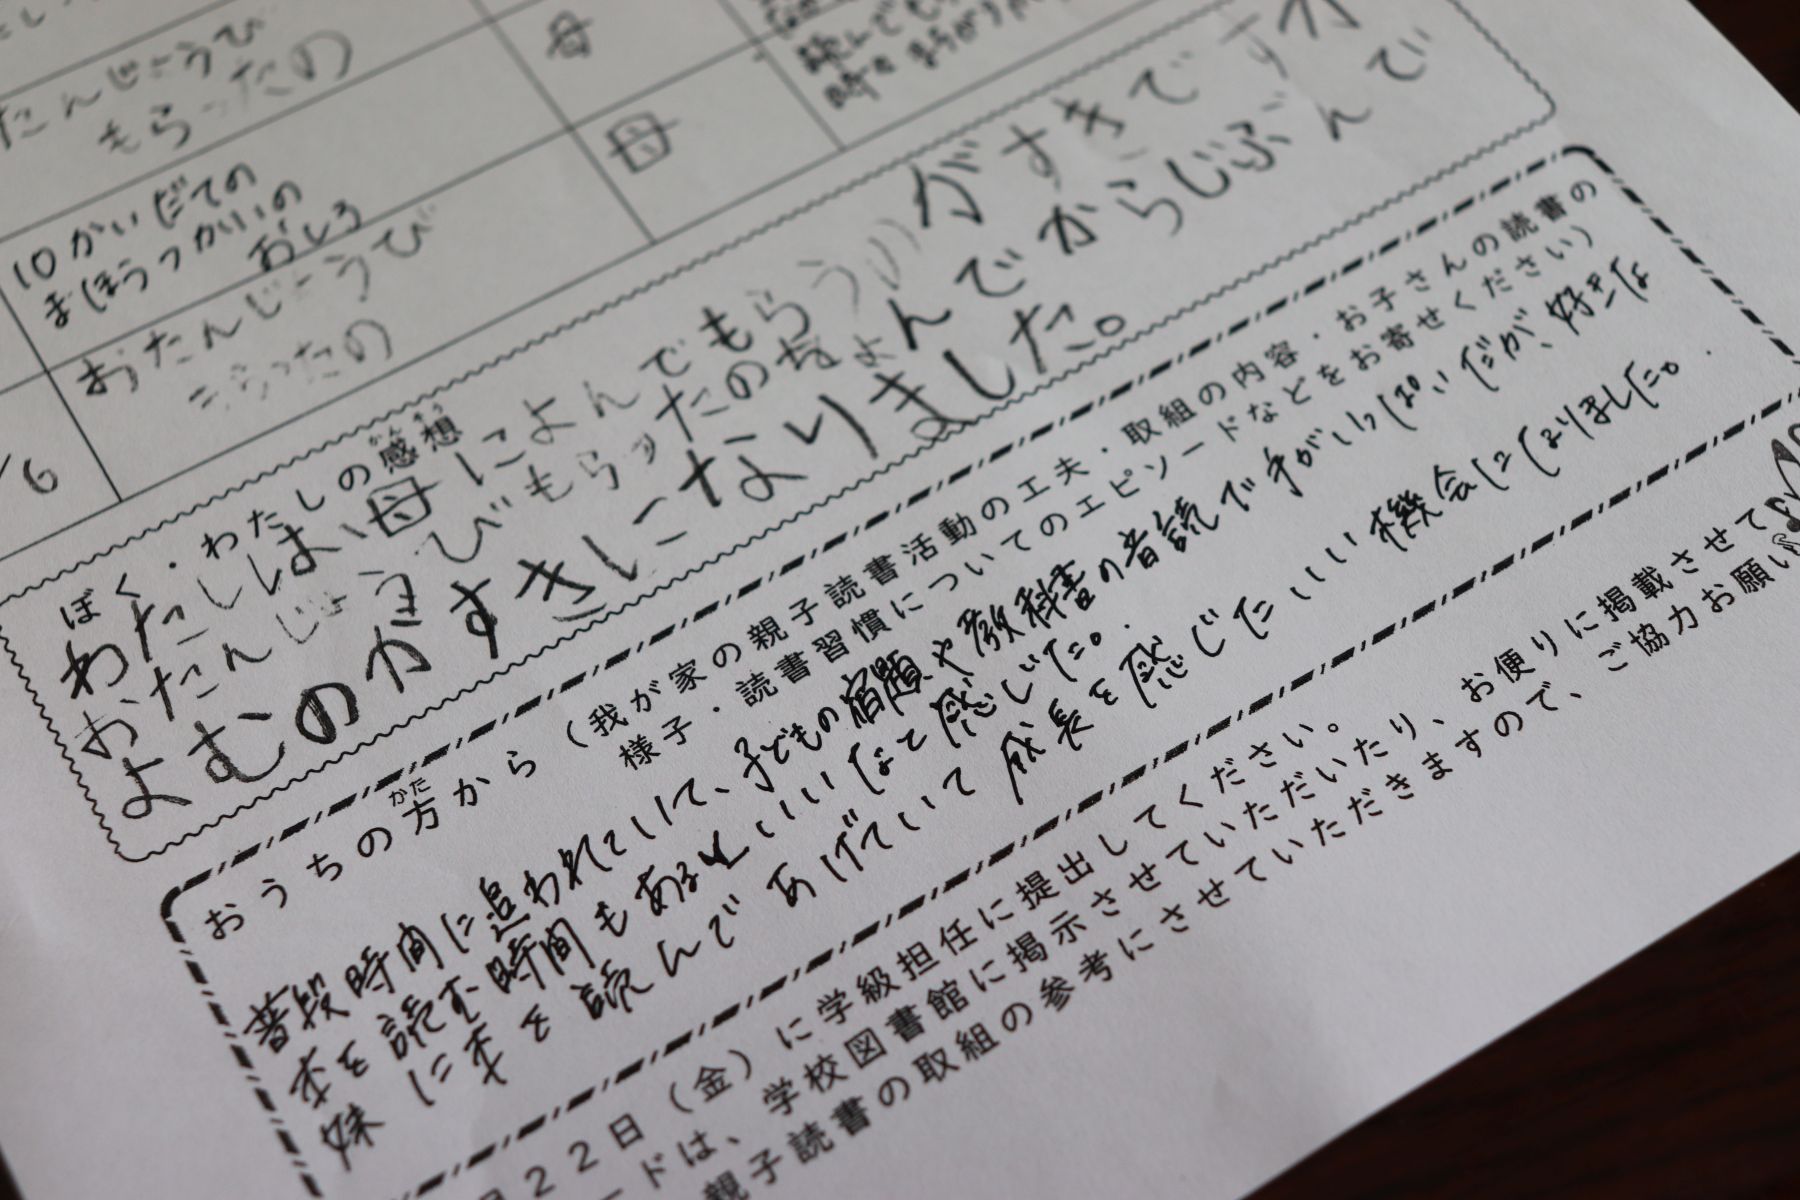 たんじょうび
もらったの
母
読んでも
時は
10かいだての
まほうつかいの
おしろ
母
おたんじょうび
もらったの
6
ぼく・わたしの感想
かんそう
わたしは、母によんでもらうのがすきです
おたんじょうびもらったのをよんでからじぶんで
よむのがすきになりました。
おうちの方から（我が家の親子読書活動の工夫・取組の内容・お子さんの読書の
かた
様子・読書習慣についてのエピソードなどをお寄せください）
普段時間に追われていて、子どもの宿題や教科書の音読で手がいっぱいだが、好きな
本を読む時間もあるといいなと感じた。
妹に本を読んであげていて成長を感じたいい機会になりました。
22日（金）に学級担任に提出してください。
ードは、学校図書館に掲示させていただいたり、お便りに掲載させて
親子読書の取組の参考にさせていただきますので、ご協力お願い